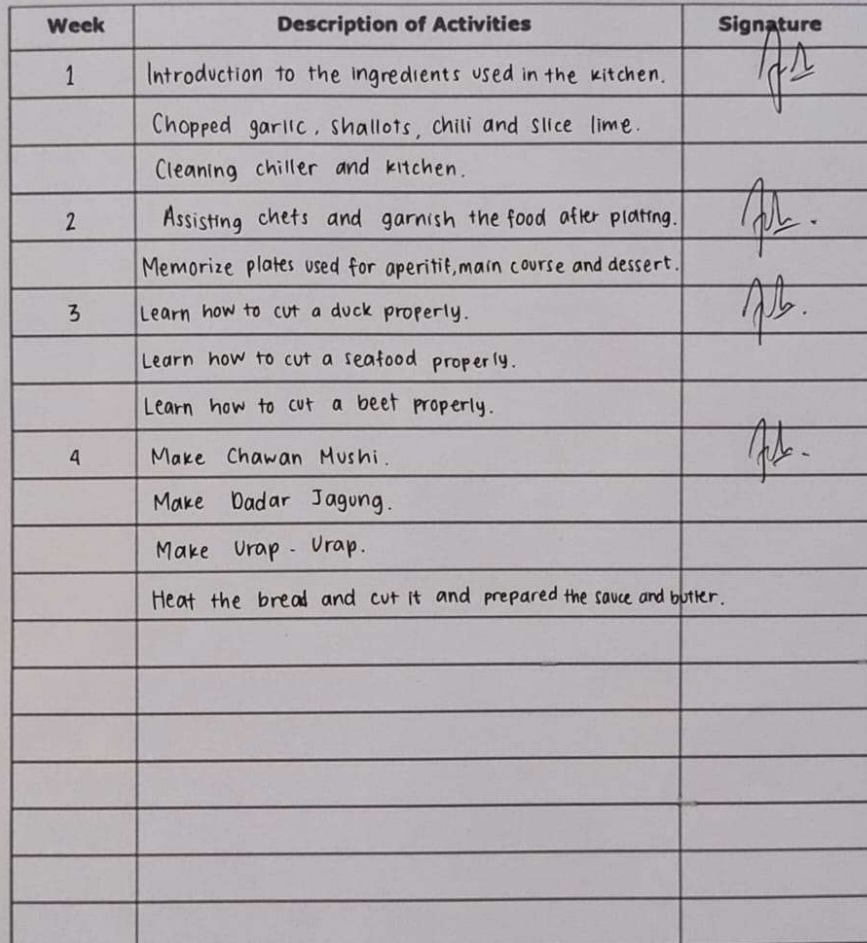 Week Description of Activities Signature
1 Introduction to the ingredients used in the kitchen.
Chopped garlic, shallots, chili and slice lime.
Cleaning chiller and kitchen.
2 Assisting chefs and garnish the food after plating.
Memorize plates used for aperitif, main course and dessert.
3 Learn how to cut a duck properly.
Learn how to cut a seafood properly.
Learn how to cut a beef properly.
4 Make Chawan Mushi.
Make Dadar Jagung.
Make Urap - Urap.
Heat the bread and cut it and prepared the sauce and butter.